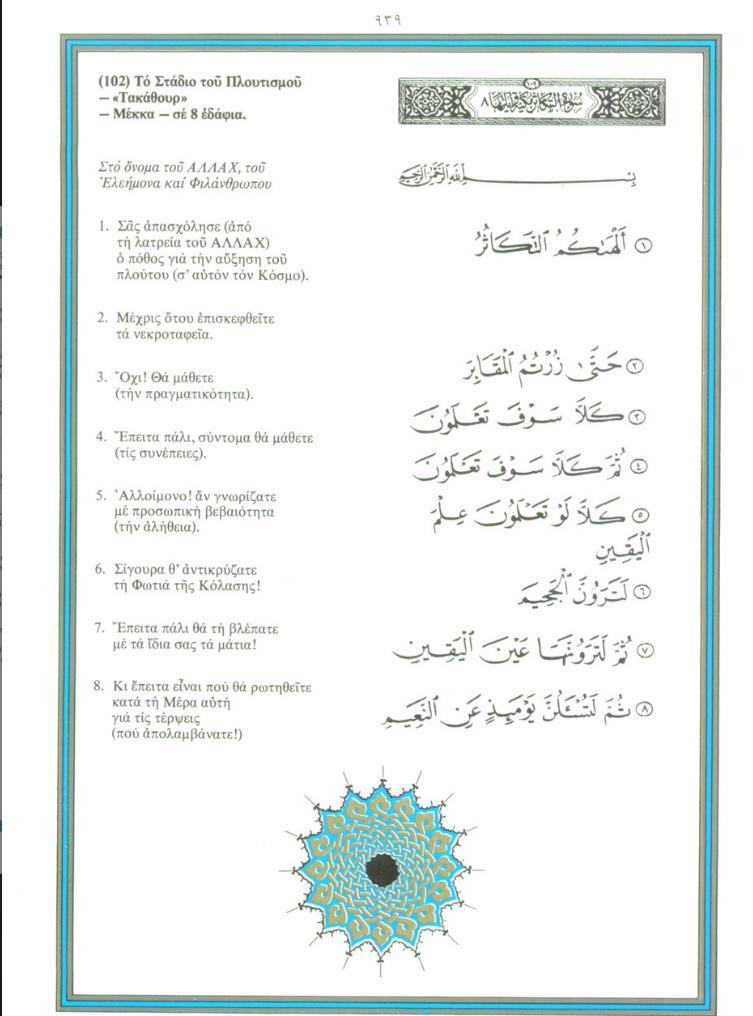 ٩٣٩
(102) Τό Στάδιο τοῦ Πλουτισμοῦ
— «Τακάθουρ»
— Μέκκα — σέ 8 ἐδάφια.
سورة التكاثر مكية وآياتها ٨
١٠٢
Στό ὄνομα τοῦ ΑΛΛΑΧ, τοῦ
Ἐλεήμονα καί Φιλάνθρωπου
بِسْمِ اللَّهِ الرَّحْمَٰنِ الرَّحِيمِ
1. Σᾶς ἀπασχόλησε (ἀπό
τή λατρεία τοῦ ΑΛΛΑΧ)
ὁ πόθος γιά τήν αὔξηση τοῦ
πλούτου (σ' αὐτόν τόν Κόσμο).
2. Μέχρις ὅτου ἐπισκεφθεῖτε
τά νεκροταφεῖα.
3. Ὄχι! Θά μάθετε
(τήν πραγματικότητα).
4. Ἔπειτα πάλι, σύντομα θά μάθετε
(τίς συνέπειες).
5. Ἀλλοίμονο! ἄν γνωρίζατε
μέ προσωπική βεβαιότητα
(τήν ἀλήθεια).
6. Σίγουρα θ' ἀντικρύζατε
τή Φωτιά τῆς Κόλασης!
7. Ἔπειτα πάλι θά τή βλέπατε
μέ τά ἴδια σας τά μάτια!
8. Κι ἔπειτα εἶναι πού θά ρωτηθεῖτε
κατά τή Μέρα αὐτή
γιά τίς τέρψεις
(πού ἀπολαμβάνατε!)
١ أَلْهَىٰكُمُ ٱلتَّكَاثُرُ
٢ حَتَّىٰ زُرْتُمُ ٱلْمَقَابِرَ
٣ كَلَّا سَوْفَ تَعْلَمُونَ
٤ ثُمَّ كَلَّا سَوْفَ تَعْلَمُونَ
٥ كَلَّا لَوْ تَعْلَمُونَ عِلْمَ
ٱلْيَقِينِ
٦ لَتَرَوُنَّ ٱلْجَحِيمَ
٧ ثُمَّ لَتَرَوُنَّهَا عَيْنَ ٱلْيَقِينِ
٨ ثُمَّ لَتُسْـَٔلُنَّ يَوْمَئِذٍ عَنِ ٱلنَّعِيمِ